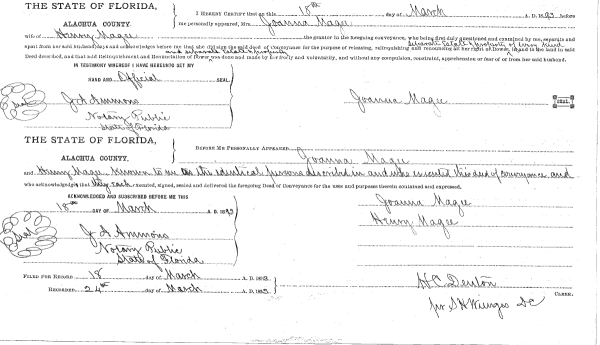 THE STATE OF FLORIDA,
ALACHUA COUNTY.
I HEREBY CERTIFY that on this 18th day of March A. D. 1893 before
me personally appeared, Mrs. Joanna Magee
wife of Henry Magee the grantor in the foregoing conveyance, who being first duly questioned and examined by me, separate and
apart from her said husband, says and acknowledges before me that she did sign the said deed of Conveyance for the purpose of releasing, relinquishing and renouncing all her right of Dower, separate Estate & property of every kind in and to the land in said
and separate Estate & property
Deed described, and that said Relinquishment and Renunciation of Dower was done and made by her freely and voluntarily, and without any compulsion, constraint, apprehension or fear of or from her said husband.
IN TESTIMONY WHEREOF I HAVE HEREUNTO SET MY
HAND AND Official SEAL.
Seal J A Ammons
Notary Public
State of Florida
Joanna Magee SEAL.
THE STATE OF FLORIDA,
ALACHUA COUNTY.
BEFORE ME PERSONALLY APPEARED Joanna Magee
and Henry Magee known to me as the identical persons described in and who executed this deed of conveyance and
who acknowledged that they each executed, signed, sealed and delivered the foregoing Deed of Conveyance for the uses and purposes therein contained and expressed.
ACKNOWLEDGED AND SUBSCRIBED BEFORE ME THIS
18th DAY OF March A. D. 1893
Seal J A Ammons
Notary Public
State of Florida
Joanna Magee
Henry Magee
FILED FOR RECORD 18 day of March A. D. 1893.
RECORDED 24th day of March A. D. 1893.
H C Denton
CLERK.
per S H Wienges D C